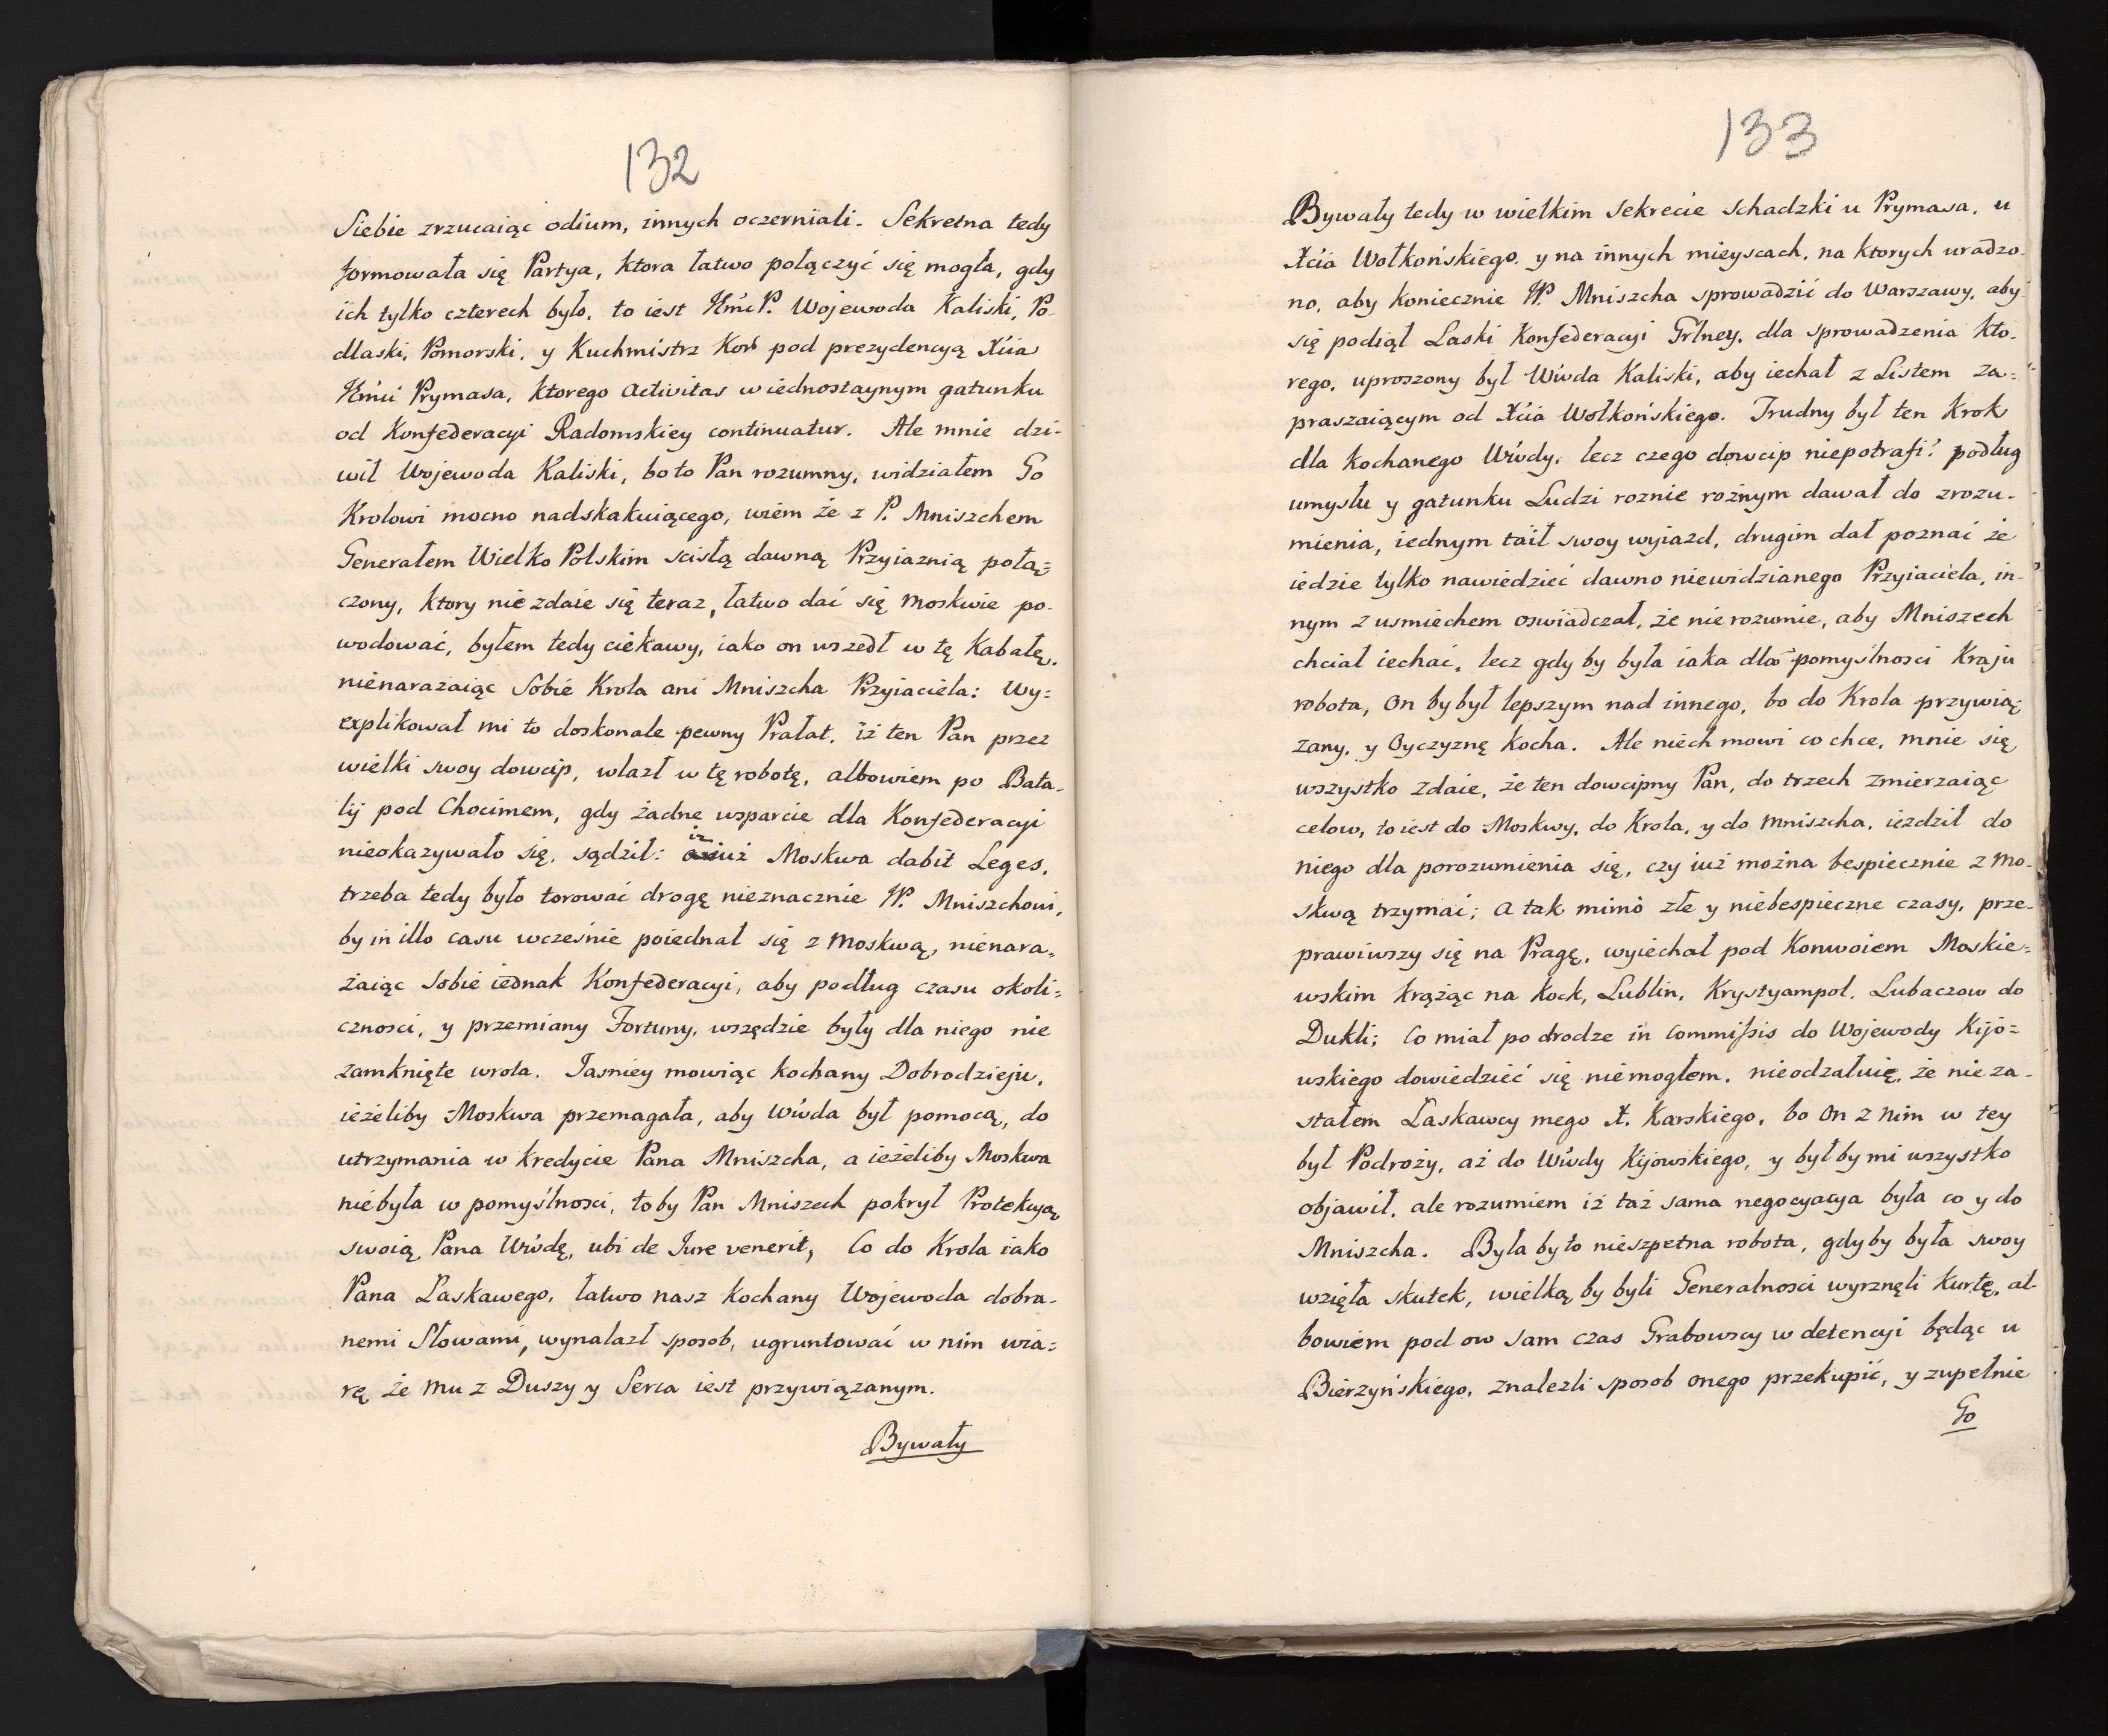 132
Siebie zrzucaiąc odium, innych oczerniali. Sekretna tedy
formowała się Partya, ktora łatwo połączyć się mogła, gdy
ich tylko czterech było, to iest JmćP. Wojewoda Kaliski, Po-
dlaski, Pomorski, y Kuchmistrz Kor pod prezydencyą Xcia
Jmci Prymasa, ktorego activitas w iednostaynym gatunku
od Konfederacyi Radomskiey continuatur. Ale mnie dzi-
wił Wojewoda Kaliski, bo to Pan rozumny, widziałem Go
Krolowi mocno nadskakuiącego, wiem że z P. Mniszchem
Generałem Wielko Polskim scisłą dawną Przyiaznią połą=
czony, ktory nie zdaie się teraz, łatwo dać się Moskwie po-
wodować, byłem tedy ciekawy, iako on wszedł w tę Kabałę,
nienarażaiąc Sobie Krola ani Mniszcha Przyiaciela: Wy=
explikował mi to doskonale pewny Prałat, iż ten Pan przez
wielki swoy dowcip, wlazł w tę robotę, albowiem po Bata-
lij pod Chocimem, gdy żadne wsparcie dla Konfederacyi
nieokazywało się, sądził: iż iuż Moskwa dabit Leges,
trzeba tedy było torować drogę nieznacznie JP. Mniszchowi,
by in illo casu wcześnie poiednał się z Moskwą, nienara=
żaiąc sobie iednak Konfederacyi, aby podług czasu okoli=
cznosci, y przemiany Fortuny, wszędzie były dla niego nie
zamknięte wrota. Jasniey mowiąc kochany Dobrodzieju,
ieżeliby Moskwa przemagała, aby Wwda był pomocą, do
utrzymania w kredycie Pana Mniszcha, a ieżeliby Moskwa
niebyła w pomyślnosci, to by Pan Mniszech pokrył Protekcyą
swoią Pana Wwdę, ubi de Jure venerit, Co do Krola iako
Pana Łaskawego, łatwo nasz kochany Wojewoda dobra-
nemi Słowami, wynalazł sposob, ugruntować w nim wia=
rę że mu z Duszy y Serca iest przywiązanym.
Bywały
133
Bywały tedy w wielkim sekrecie schadzki u Prymasa, u
Xcia Wołkońskiego, y na innych mieyscach, na ktorych uradzo-
no, aby koniecznie JP. Mniszcha sprowadzić do Warszawy, aby
się podiął Laski Konfederacyi Grlney, dla sprowadzenia kto-
rego, uproszony był Wwda Kaliski, aby iechał z Listem za=
praszaiącym od Xcia Wołkońskiego. Trudny był ten krok
dla kochanego Wwdy, lecz czego dowcip niepotrafi? podług
umysłu y gatunku Ludzi roznie rożnym dawał do zrozu-
mienia, iednym taił swoy wyiazd, drugim dał poznać że
iedzie tylko nawiedzieć dawno niewidzianego Przyiaciela, in-
nym z usmiechem oswiadczał, że nie rozumie, aby Mniszech
chciał iechać, lecz gdy by była iaka dla pomyślnosci Kraju
robota, on by był lepszym nad innego, bo do Krola przywią=
zany, y Oyczyznę kocha. Ale niech mowi co chce, mnie się
wszystko zdaie, że ten dowcipny Pan, do trzech zmierzaiąc
celow, to iest do Moskwy, do Krola, y do Mniszcha, iezdził do
niego dla porozumienia się, czy iuż można bespiecznie z Mo-
skwą trzymać; a tak mimo złe y niebespieczne czasy, prze-
prawiwszy się na Pragę, wyiechał pod Konwoiem Moskie=
wskim krążąc na Kock, Lublin, Krystyampol, Lubaczow do
Dukli; Co miał po drodze in Commissis do Wojewody Kijo=
wskiego dowiedzieć się niemogłem, nieodzałuię, że nie za-
stałem Łaskawcy mego X. Karskiego, bo on z nim w tey
był Podroży, aż do Wwdy Kijowskiego, y był by mi wszystko
objawił, ale rozumiem iż taż sama negocyacya była co y do
Mniszcha. Była by to nieszpetna robota, gdyby była swoy
wzięła skutek, wielką by byli Generalnosci wyrznęli kurtę, al-
bowiem pod ow sam czas Grabowscy w detencyi będąc u
Bierzyńskiego, znalezli sposob onego przekupić, y zupełnie
Go